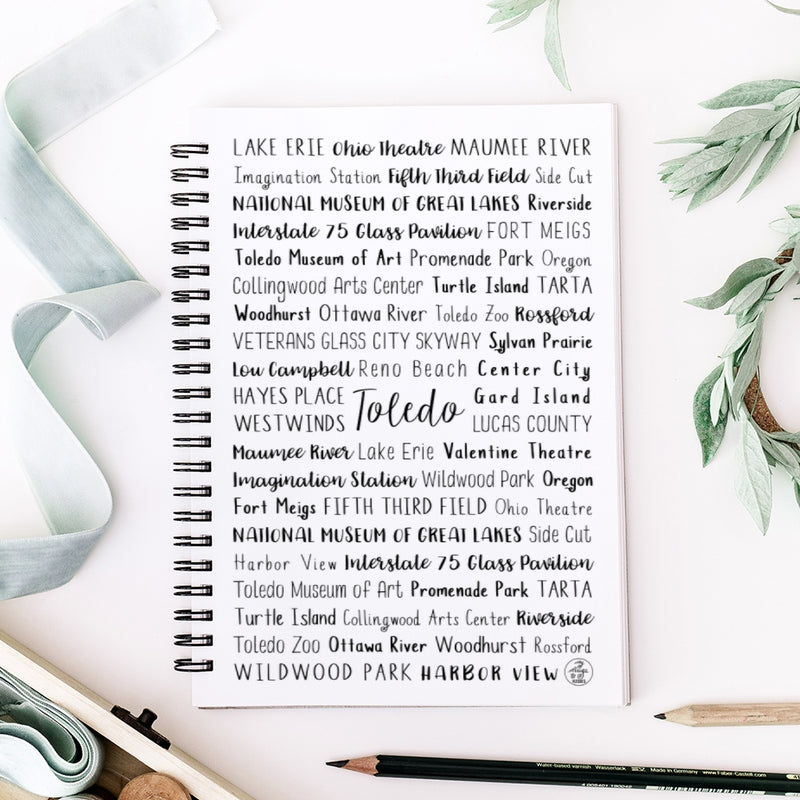 LAKE ERIE Ohio Theatre MAUMEE RIVER
Imagination Station Fifth Third Field Side Cut
NATIONAL MUSEUM OF GREAT LAKES Riverside
Interstate 75 Glass Pavilion FORT MEIGS
Toledo Museum of Art Promenade Park Oregon
Collingwood Arts Center Turtle Island TARTA
Woodhurst Ottawa River Toledo Zoo Rossford
VETERANS GLASS CITY SKYWAY Sylvan Prairie
Lou Campbell Reno Beach Center City
HAYES PLACE Toledo Gard Island
WESTWINDS LUCAS COUNTY
Maumee River Lake Erie Valentine Theatre
Imagination Station Wildwood Park Oregon
Fort Meigs FIFTH THIRD FIELD Ohio Theatre
NATIONAL MUSEUM OF GREAT LAKES Side Cut
Harbor View Interstate 75 Glass Pavilion
Toledo Museum of Art Promenade Park TARTA
Turtle Island Collingwood Arts Center Riverside
Toledo Zoo Ottawa River Woodhurst Rossford
WILDWOOD PARK HARBOR VIEW
Water-based varnish Wasserlack Made in Germany www.Faber-Castell.com